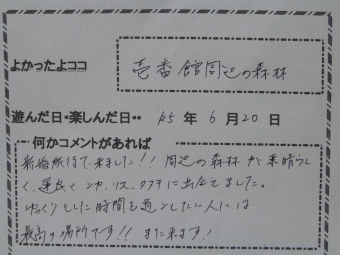 よかったよココ
壱番館周辺の森林
遊んだ日・楽しんだ日・・ 25年6月20日
何かコメントがあれば
新婚旅行で来ました!!周辺の森林が素晴らし
く、運良くシカ、リス、タヌキに出会えました。
ゆっくりとした時間を過ごしたい人には
最高の場所です!!また来ます!